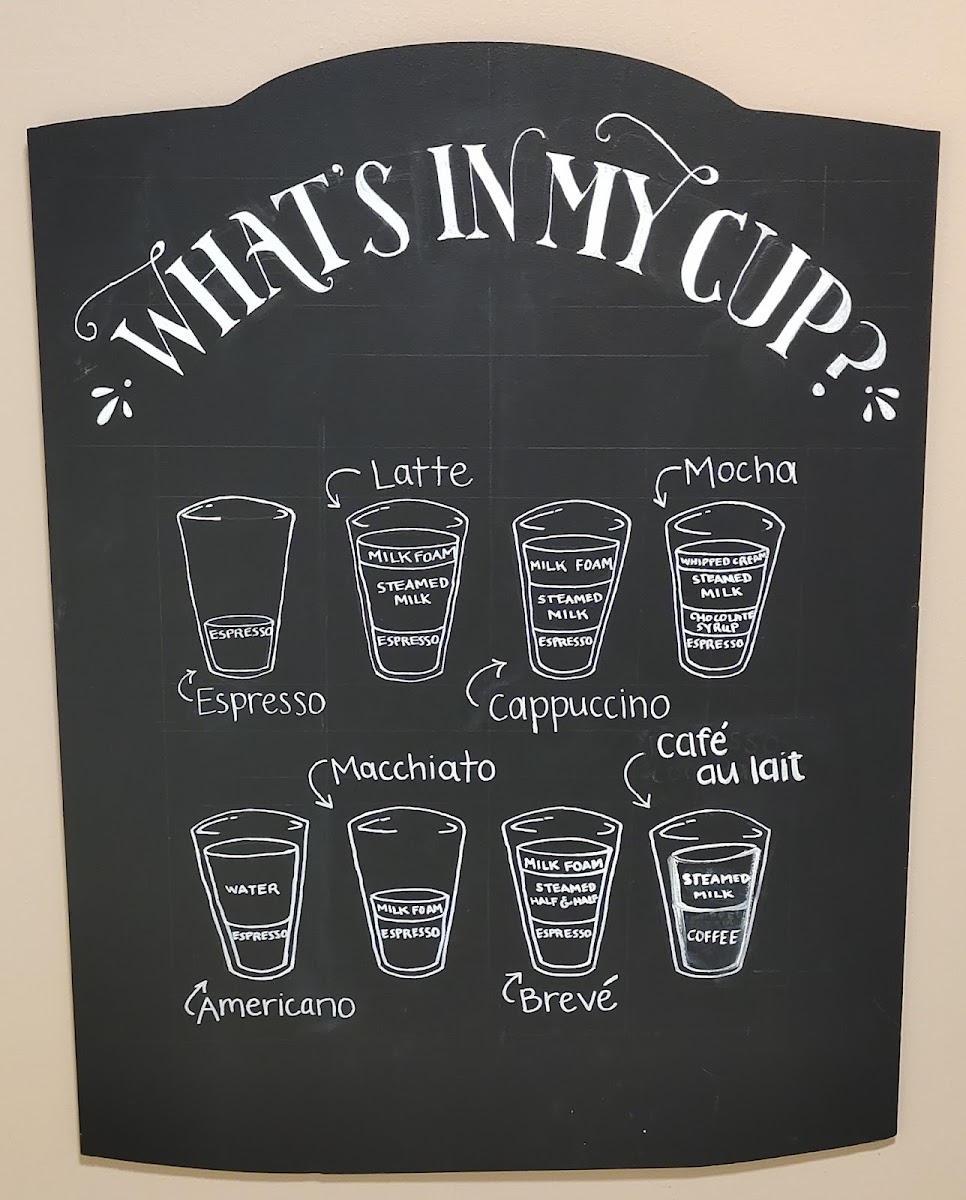 WHAT'S IN MY CUP?
Latte
Mocha
ESPRESSO
MILK FOAM
STEAMED
MILK
ESPRESSO
MILK FOAM
STEAMED
MILK
ESPRESSO
WHIPPED CREAM
STEAMED
MILK
CHOCOLATE
SYRUP
ESPRESSO
Espresso
Cappuccino
Macchiato
café
au lait
WATER
ESPRESSO
MILK FOAM
ESPRESSO
MILK FOAM
STEAMED
HALF & HALF
ESPRESSO
STEAMED
MILK
COFFEE
Americano
Brevé